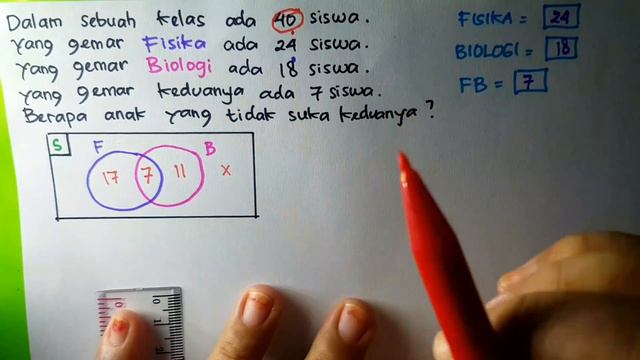 Dalam sebuah kelas ada 40 siswa.
yang gemar Fisika ada 24 siswa.
yang gemar Biologi ada 18 siswa.
yang gemar keduanya ada 7 siswa.
Berapa anak yang tidak suka keduanya?
FISIKA = 24
BIOLOGI = 18
FB = 7
S F B
17 7 11 x
0 1
0 1